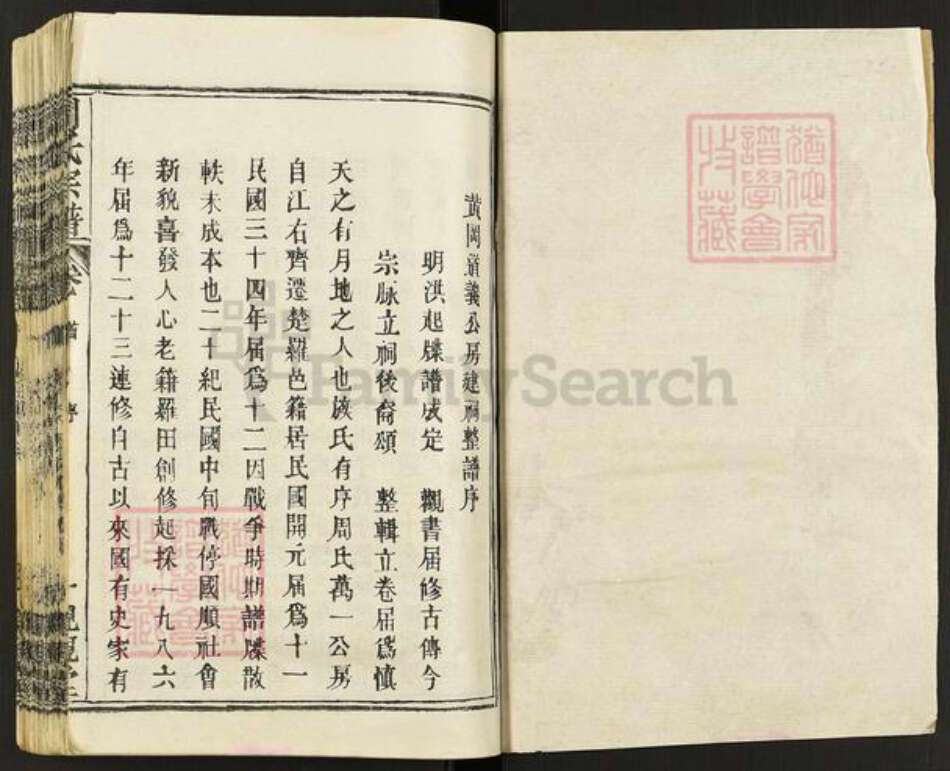 黄岡道義公房建祠整譜序
明洪起牒譜成定　觀書届修古傳今
宗脉立祠後裔頌　整輯立卷届爲慎
天之有月地之人也族氏有序周氏萬一公房
自江右齊遷楚羅邑籍居民國開元届爲十一
民國三十四年届爲十二因戰争時期譜牒散
軼未成本也二十紀民國中旬戰停國順社會
新貌喜發人心老籍羅田創修起採一九八六
年届爲十二十三連修自古以來國有史家有
氏宗譜 卷 首 序 一
FamilySearch
譜學會
收藏